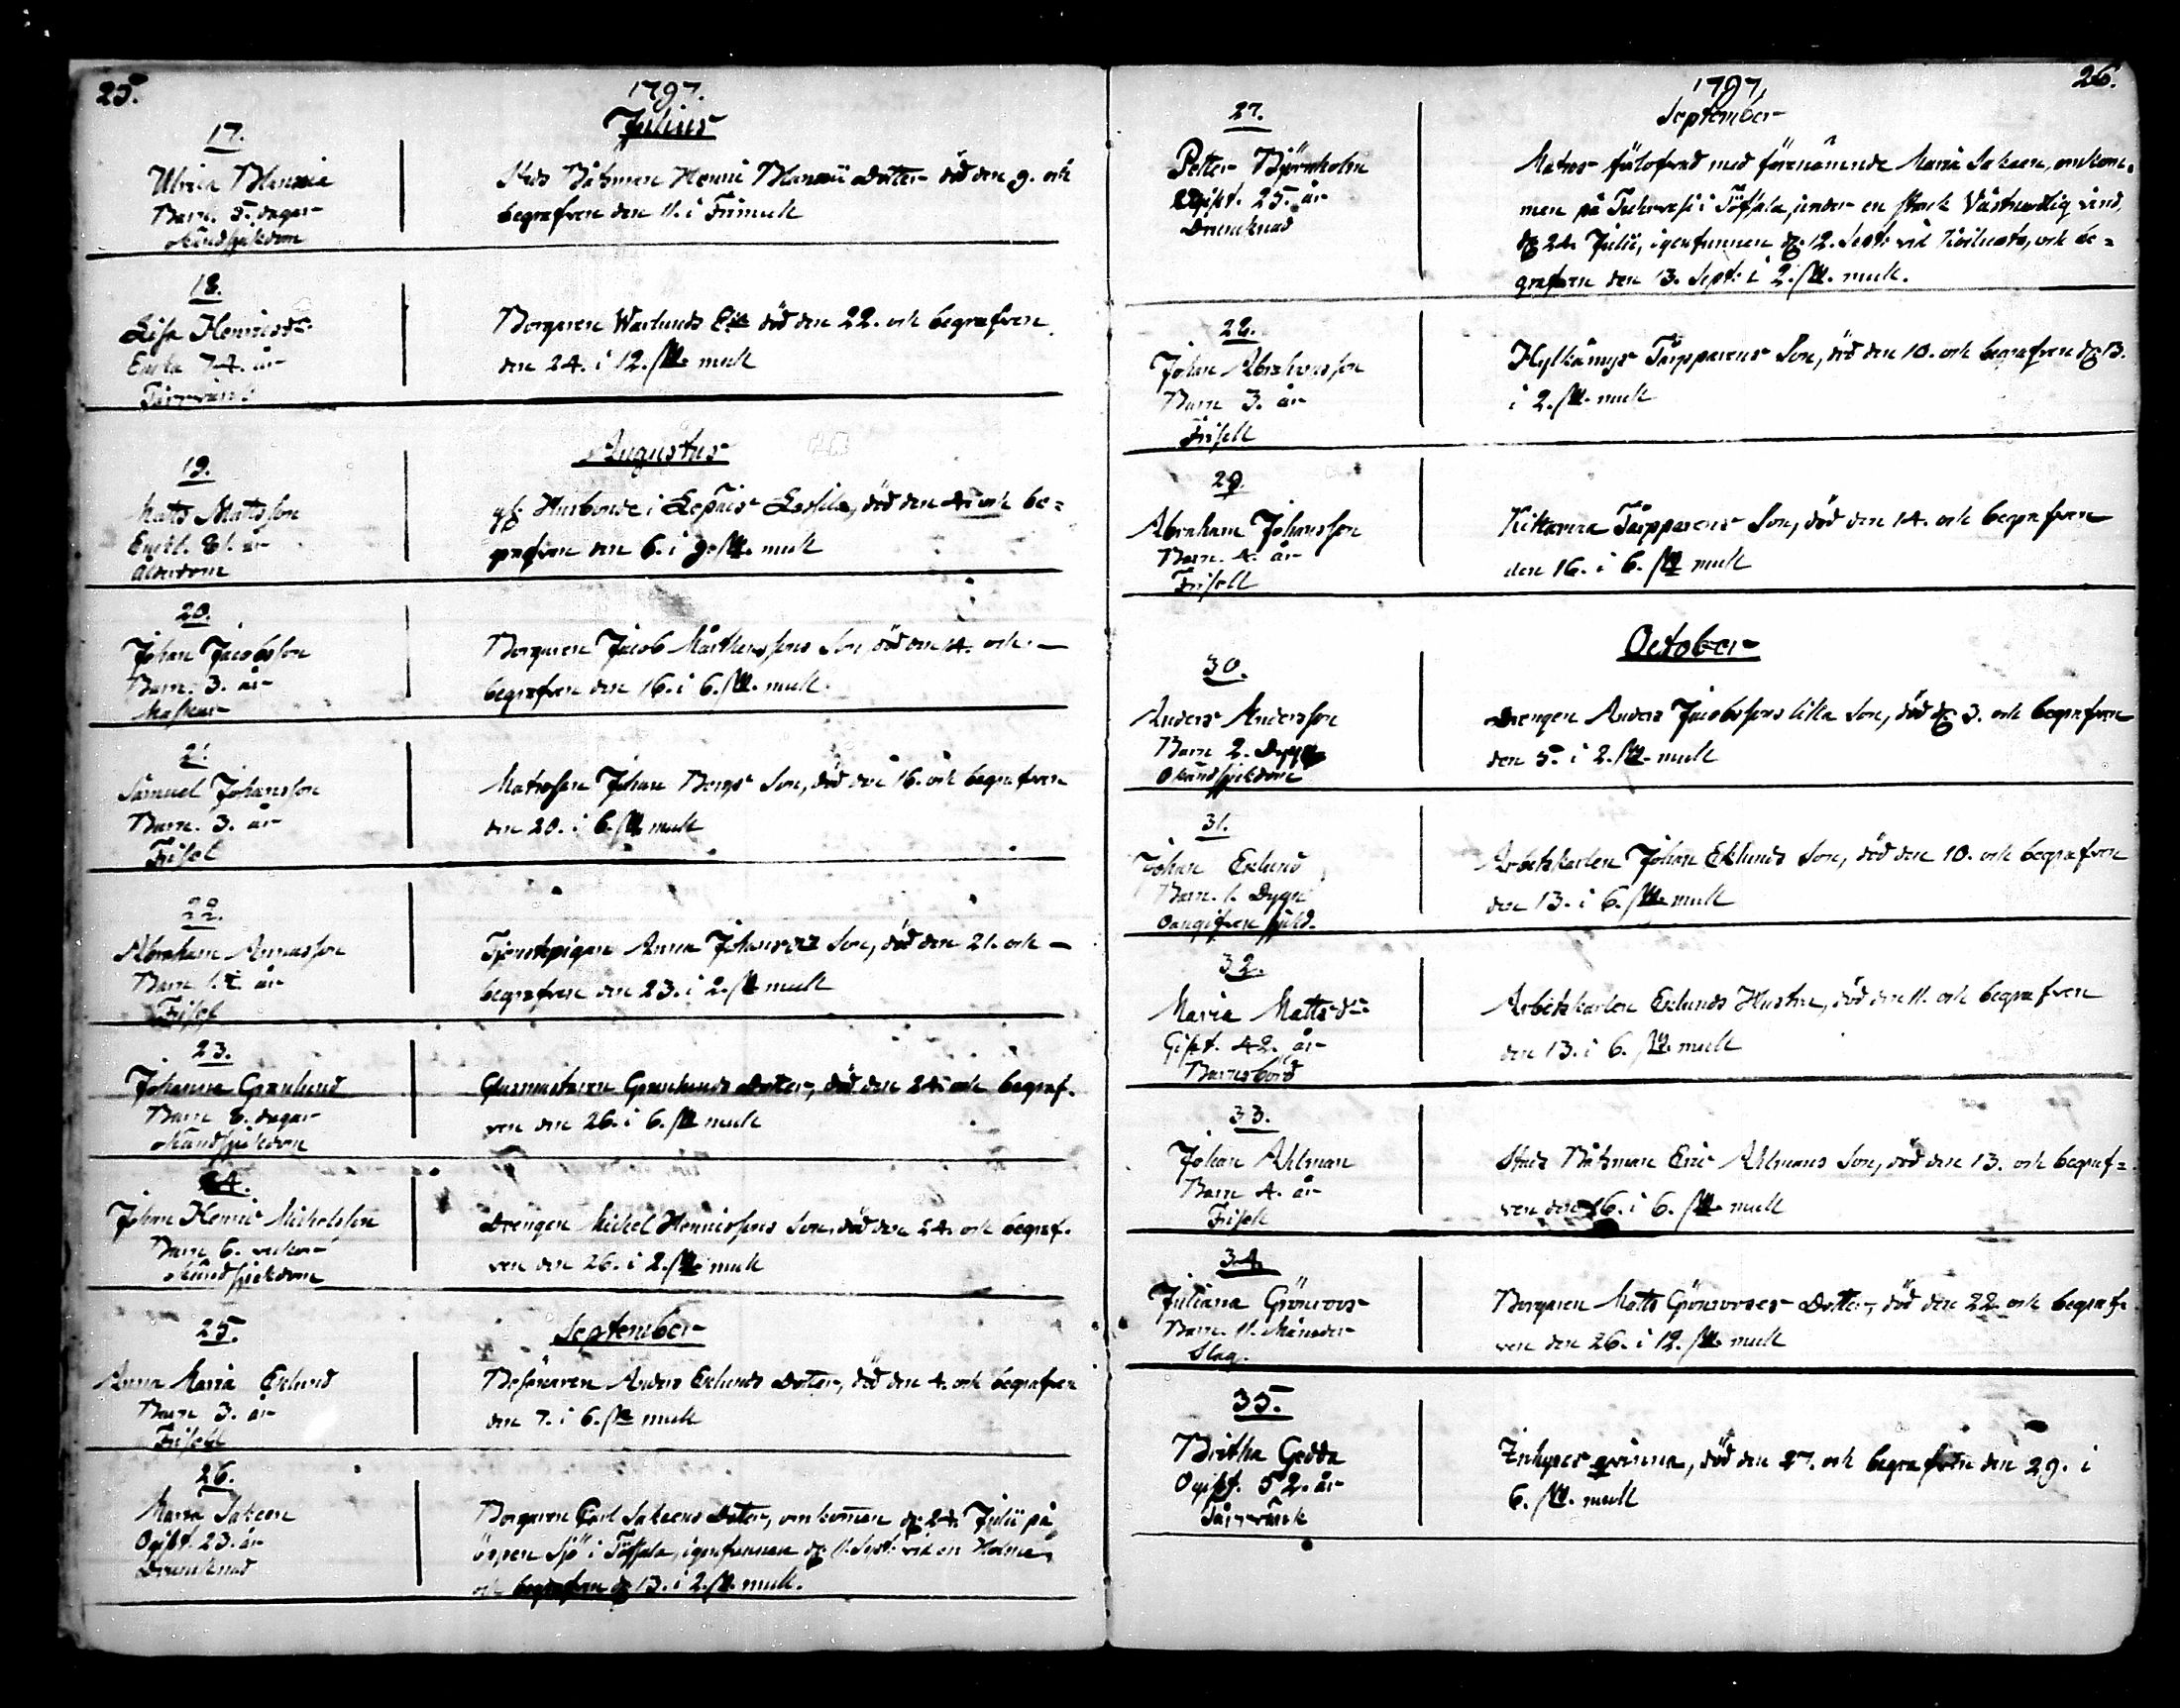 25.
1797.
Julius
17.
Ulrica
Barn. 5. dagar
Okänd sjukdom
Stads Båtsman Henric Dotter död den 9. och
begrafven den 11. i Frimull
18.
Lisa Henricsdr
Enka 74. år
Borgaren Warlunds Enka död den 22. och begrafven
den 24. i 12. sk. mull
Augustus
19.
Matts Mattsson
Enkl. 81. år
Ålderdom
gl. Husbonde i död den 4. och be=
grafven den 6. i 9. sk. mull
20.
Johan Jacobsson
Barn. 3. år
Jacob Mårtenssons Son död den 14. och
begrafven den 16. i 6. sk. mull.
21.
Samuel Johansson
Barn. 3. år
Frisel
Matrosen Johan Bergs Son, död den 16. och begrafven
den 20. i 6. sk mull
22.
Abraham Annasson
Barn år
Frisel
Tjenstepigan Anna Johansdr Son, död den 21. och
begrafven den 23. i 2. sk mull
23.
Johanna Granlund
Barn 8. dagar
Okänd sjukdom
Glasmästaren Granlunds Dotter, död den 24. och begraf-
ven den 26. i 6. sk mull
24.
Johan Henric Michelsson
Barn 6. veckor
Okänd sjukdom
Drengen Michel Henricssons Son, död den 24. och begraf-
ven den 26. i 2. sk. mull
September
25.
Anna Maria Eklund
Barn 3. år
Frisell
Besökaren Anders Eklunds Dotter, död den 4. och begrafven
den 7. i 6. sk mull
26.
Maria Sakeen
Ogift. 23. år
Drunknad
Borgaren Carl Sakeens Dotter, omkommen d. 24. Julii på
öppen Sjö i Töfsala, igenfunnen d. 11. Sept: vid en Holme,
och begrafven d. 13. i 2. sk. mull.
26.
1797.
September
27.
Petter Björnholm
Ogift. 25. år
Drunknad
Matros följaktad med förenämnde Maria Sakeen, omkom-
men på i Töfsala, under en stark Västnordlig vind,
d. 24. Julii, igenfunnen d. 12. Sept: vid och be=
grafven den 13. Sept: i 2. sk. mull.
28.
Johan Abrahamsson
Barn 3. år
Frisell
Hylkämys Torpparens Son, död den 10. och begrafven d. 13.
i 2. sk. mull
29.
Abraham Johansson
Barn. 4. år
Frisell
Torpparens Son, död den 14. och begrafven
den 16. i 6. sk mull
October
30.
Anders Andersson
Barn 2. Dygn
Okänd sjukdom
Drengen Anders Jacobssons lilla Son, död d. 3. och begrafven
den 5. i 2. sk. mull
31.
Johan Eklund
Barn. 1. Dygn
Oangifven sjukd.
Arbetskarlen Johan Eklunds Son, död den 10. och begrafven
den 13. i 6. sk. mull
32.
Maria Mattsdr
Gift. 42. år
Barnsbörd
Arbetskarlen Eklunds Hustru, död den 11. och begrafven
den 13. i 6. sk. mull
33.
Johan Ahlman
Barn 4. år
Frisell
Stads Båtsman Eric Ahlmans Son, död den 13. och begraf=
ven den 16. i 6. sk. mull
34.
Juliana Grönroos
Barn. 11. Månader
Slag.
Borgaren Matts Grönrooses Dotter, död den 22. och begraf-
ven den 26. i 12. sk. mull
35.
Britha Gedda
Ogift. 52. år
Inhyses qvinna, död den 27. och begrafven den 29. i
6. sk. mull